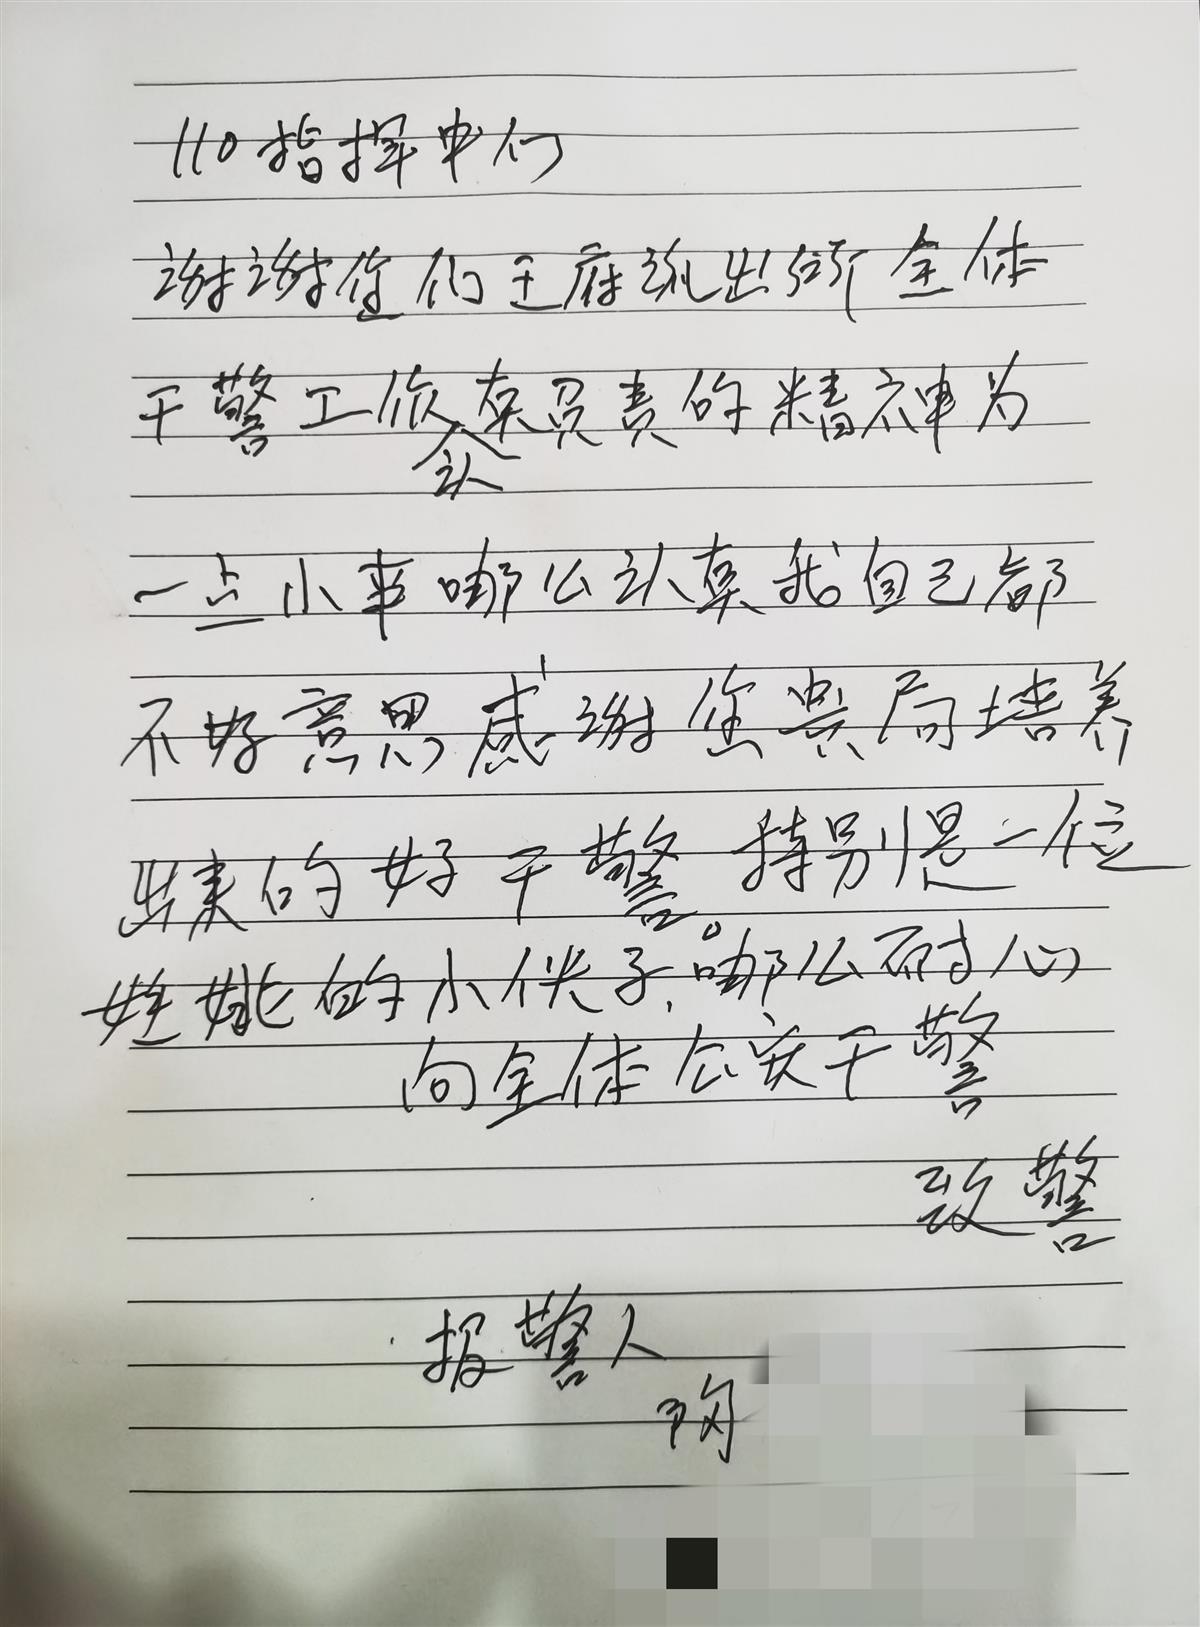 110指挥中心
谢谢您们王府派出所全体
干警工作真负责的精神为
认
一点小事哪么认真我自己都
不好意思感谢您贵局培养
出来的好干警。特别是一位
姓姚的小伙子,哪么耐心
向全体公安干警
致警
报警人